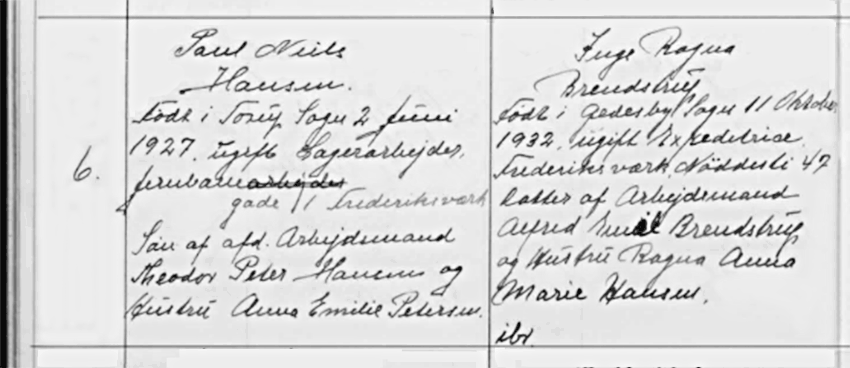 6.
Paul Niels
Hansen.
født i Torup Sogn 2 Juni
1927, ugift Lagerarbejder,
Jernbane arbejder
gade 11 Frederiksværk
Søn af afd. Arbejdsmand
Theodor Peter Hansen og
Hustru Anna Emilie Petersen.
Inge Ragna
Brendstrup
født i Gedesby Sogn 11 Oktober
1932, ugift Expeditrice
Frederiksværk, Nøddesti 47
Datter af Arbejdsmand
Alfred Emil Brendstrup
og Hustru Ragna Anna
Marie Hansen,
ibr.